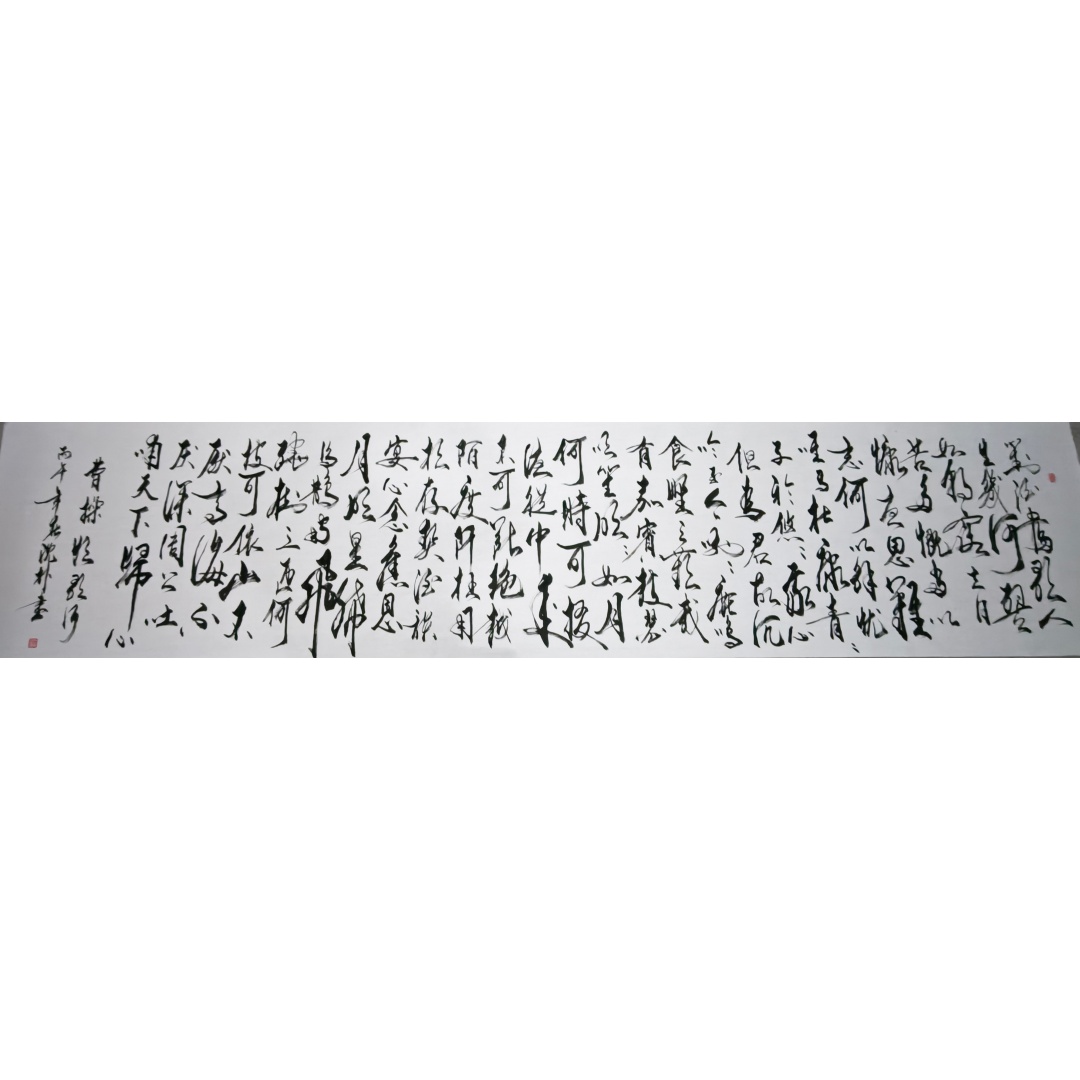 對酒當歌人
生幾何譬
如朝露去日
苦多慨當以
慷憂思難
忘何以解忧
唯有杜康青青
子衿悠悠我心
但為君故沉
吟至今呦呦鹿鳴
食野之蘋我
有嘉賓鼓瑟
吹笙明明如月
何時可掇
憂從中来
不可斷絶越
陌度阡枉用
相存契闊談
宴心念舊恩
月明星稀
烏鵲南飛
繞樹三匝何
枝可依山不
厭高海不
厌深周公吐
哺天下歸心
曹操短歌行
丙午年春沈朴書